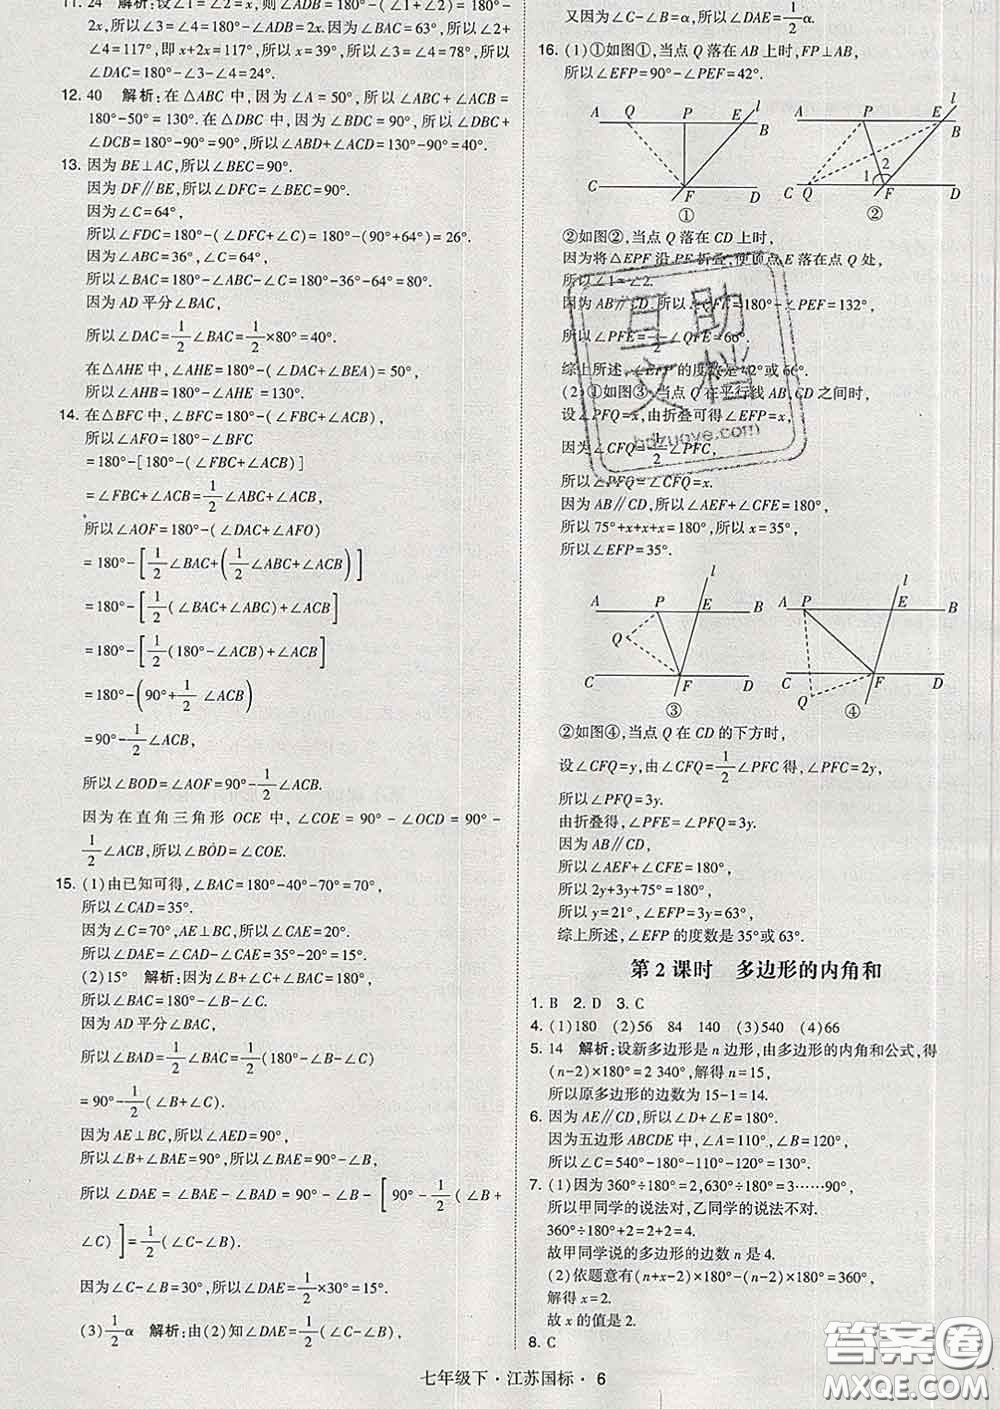 11. 24　解析:设∠1=∠2=x,则∠ADB=180°-(∠1+∠2)=180°-
2x.所以∠3=∠4=180°-∠ADB=2x.因为∠BAC=63°,所以∠2+
∠4=117°,即x+2x=117°,所以x=39°,所以∠3=∠4=78°,所以
∠DAC=180°-∠3-∠4=24°.
12. 40　解析:在△ABC中,因为∠A=50°,所以∠ABC+∠ACB=
180°-50°=130°.在△DBC中,因为∠BDC=90°,所以∠DBC+
∠DCB=180°-90°=90°,所以∠ABD+∠ACD=130°-90°=40°.
13. 因为BE⊥AC,所以∠BEC=90°.
因为DF∥BE,所以∠DFC=∠BEC=90°.
因为∠C=64°,
所以∠FDC=180°-(∠DFC+∠C)=180°-(90°+64°)=26°.
因为∠ABC=36°,∠C=64°,
所以∠BAC=180°-∠ABC-∠C=180°-36°-64°=80°.
因为AD平分∠BAC,
所以∠DAC=1/2∠BAC=1/2×80°=40°.
在△AHE中,∠AHE=180°-(∠DAC+∠BEA)=50°,
所以∠AHB=180°-∠AHE=180°-50°=130°.
14. 在△BFC中,∠BFC=180°-(∠FBC+∠ACB),
所以∠AFO=180°-∠BFC
=180°-[180°-(∠FBC+∠ACB)]
=∠FBC+∠ACB=1/2∠ABC+∠ACB,
所以∠AOF=180°-(∠DAC+∠AFO)
=180°-[1/2∠BAC+(1/2∠ABC+∠ACB)]
=180°-[1/2(∠BAC+∠ABC)+∠ACB]
=180°-[1/2(180°-∠ACB)+∠ACB]
=180°-(90°+1/2∠ACB)
=90°-1/2∠ACB,
所以∠BOD=∠AOF=90°-1/2∠ACB.
因为在直角三角形OCE中,∠COE=90°-∠OCD=90°-
1/2∠ACB,所以∠BOD=∠COE.
15. (1)由已知可得,∠BAC=180°-40°-70°=70°,
所以∠CAD=35°.
因为∠C=70°,AE⊥BC,所以∠CAE=20°.
所以∠DAE=∠CAD-∠CAE=35°-20°=15°.
(2)15°　解析:因为∠B+∠C+∠BAC=180°,
所以∠BAC=180°-∠B-∠C.
因为AD平分∠BAC,
所以∠BAD=1/2∠BAC=1/2(180°-∠B-∠C)
=90°-1/2(∠B+∠C).
因为AE⊥BC,所以∠AED=90°,
所以∠B+∠BAE=90°,所以∠BAE=90°-∠B,
所以∠DAE=∠BAE-∠BAD=90°-∠B-[90°-1/2(∠B+
∠C)]=1/2(∠C-∠B).
因为∠C-∠B=30°,所以∠DAE=1/2×30°=15°.
(3)1/2α　解析:由(2)知∠DAE=1/2(∠C-∠B),
又因为∠C-∠B=α,所以∠DAE=1/2α.
16. (1)①如图①,当点Q落在AB上时,FP⊥AB,
所以∠EFP=90°-∠PEF=42°.
A Q P E l B
C F D
①
A P E l B
1 2
C Q F D
②
②如图②,当点Q落在CD上时,
因为将△EPF沿PF折叠,使顶点E落在点Q处,
所以∠1=∠2.
因为AB∥CD,所以∠CFE=180°-∠PEF=132°,
所以∠PFE=1/2∠QFE=66°.
综上所述,∠EFP的度数是42°或66°.
(2)①如图③,当点Q在平行线AB,CD之间时,
设∠PFQ=x,由折叠可得∠EFP=x,
因为∠CFQ=1/2∠PFC,
所以∠PFQ=∠CFQ=x.
因为AB∥CD,所以∠AEF+∠CFE=180°,
所以75°+x+x+x=180°,所以x=35°,
所以∠EFP=35°.
A P E l B
Q
C F D
③
A P E l B
C Q F D
④
②如图④,当点Q在CD的下方时,
设∠CFQ=y,由∠CFQ=1/2∠PFC得,∠PFC=2y,
所以∠PFQ=3y.
由折叠得,∠PFE=∠PFQ=3y.
因为AB∥CD,
所以∠AEF+∠CFE=180°,
所以2y+3y+75°=180°,
所以y=21°,∠EFP=3y=63°,
综上所述,∠EFP的度数是35°或63°.
第2课时　多边形的内角和
1. B　2. D　3. C
4. (1)180　(2)56　84　140　(3)540　(4)66
5. 14　解析:设新多边形是n边形,由多边形的内角和公式,得
(n-2)×180°=2 340°,解得n=15,
所以原多边形的边数为15-1=14.
6. 因为AE∥CD,所以∠D+∠E=180°.
因为五边形ABCDE中,∠A=110°,∠B=120°,
所以∠C=540°-180°-110°-120°=130°.
7. (1)因为360°÷180°=2,630°÷180°=3……90°,
所以甲同学的说法对,乙同学的说法不对.
360°÷180°+2=2+2=4.
故甲同学说的多边形的边数n是4.
(2)依题意有(n+x-2)×180°-(n-2)×180°=360°,
解得x=2.
故x的值是2.
8. C
七年级下·江苏国标·6
互助
文档
hdzuoye.com
答案圈
MXQE.COM